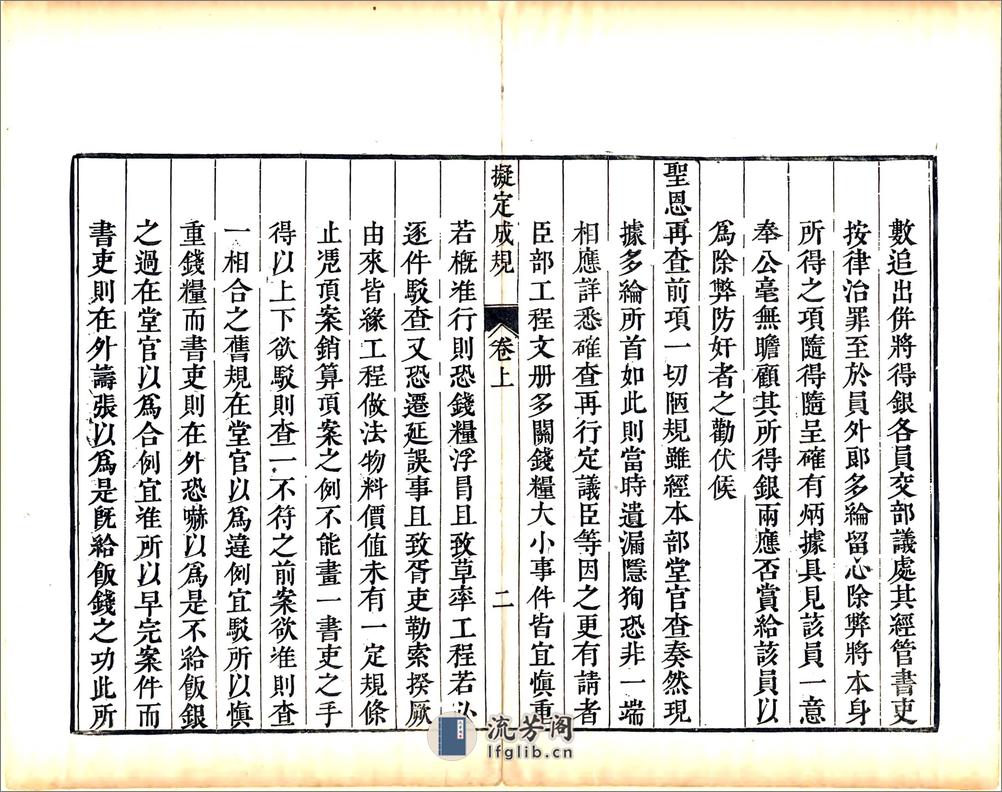 數追出倂將得銀各員交部議處其經管書吏
按律治罪至於員外郎多綸留心除弊將本身
所得之項隨得隨呈確有炳據具見該員一意
奉公毫無瞻顧其所得銀兩應否賞給該員以
爲除弊防奸者之勸伏候
聖恩再查前項一切陋規雖經本部堂官查奏然現
據多綸所首如此則當時遺漏隱狥恐非一端
相應詳悉確查再行定議臣等因之更有請者
臣部工程文册多關錢糧大小事件皆宜愼重
擬定成規
卷上
二
若槪准行則恐錢糧浮冐且致草率工程若必
逐件駁查又恐遷延誤事且致胥吏勒索揆厥
由來皆緣工程做法物料價値未有一定規條
止凴項案銷算項案之例不能畫一書吏之手
得以上下欲駁則查一不符之前案欲准則查
一相合之舊規在堂官以爲違例宜駁所以愼
重錢糧而書吏則在外恐嚇以爲是不給飯銀
之過在堂官以爲合例宜准所以早完案件而
書吏則在外譸張以爲是旣給飯錢之功此所
流芳阁
lfglib.cn